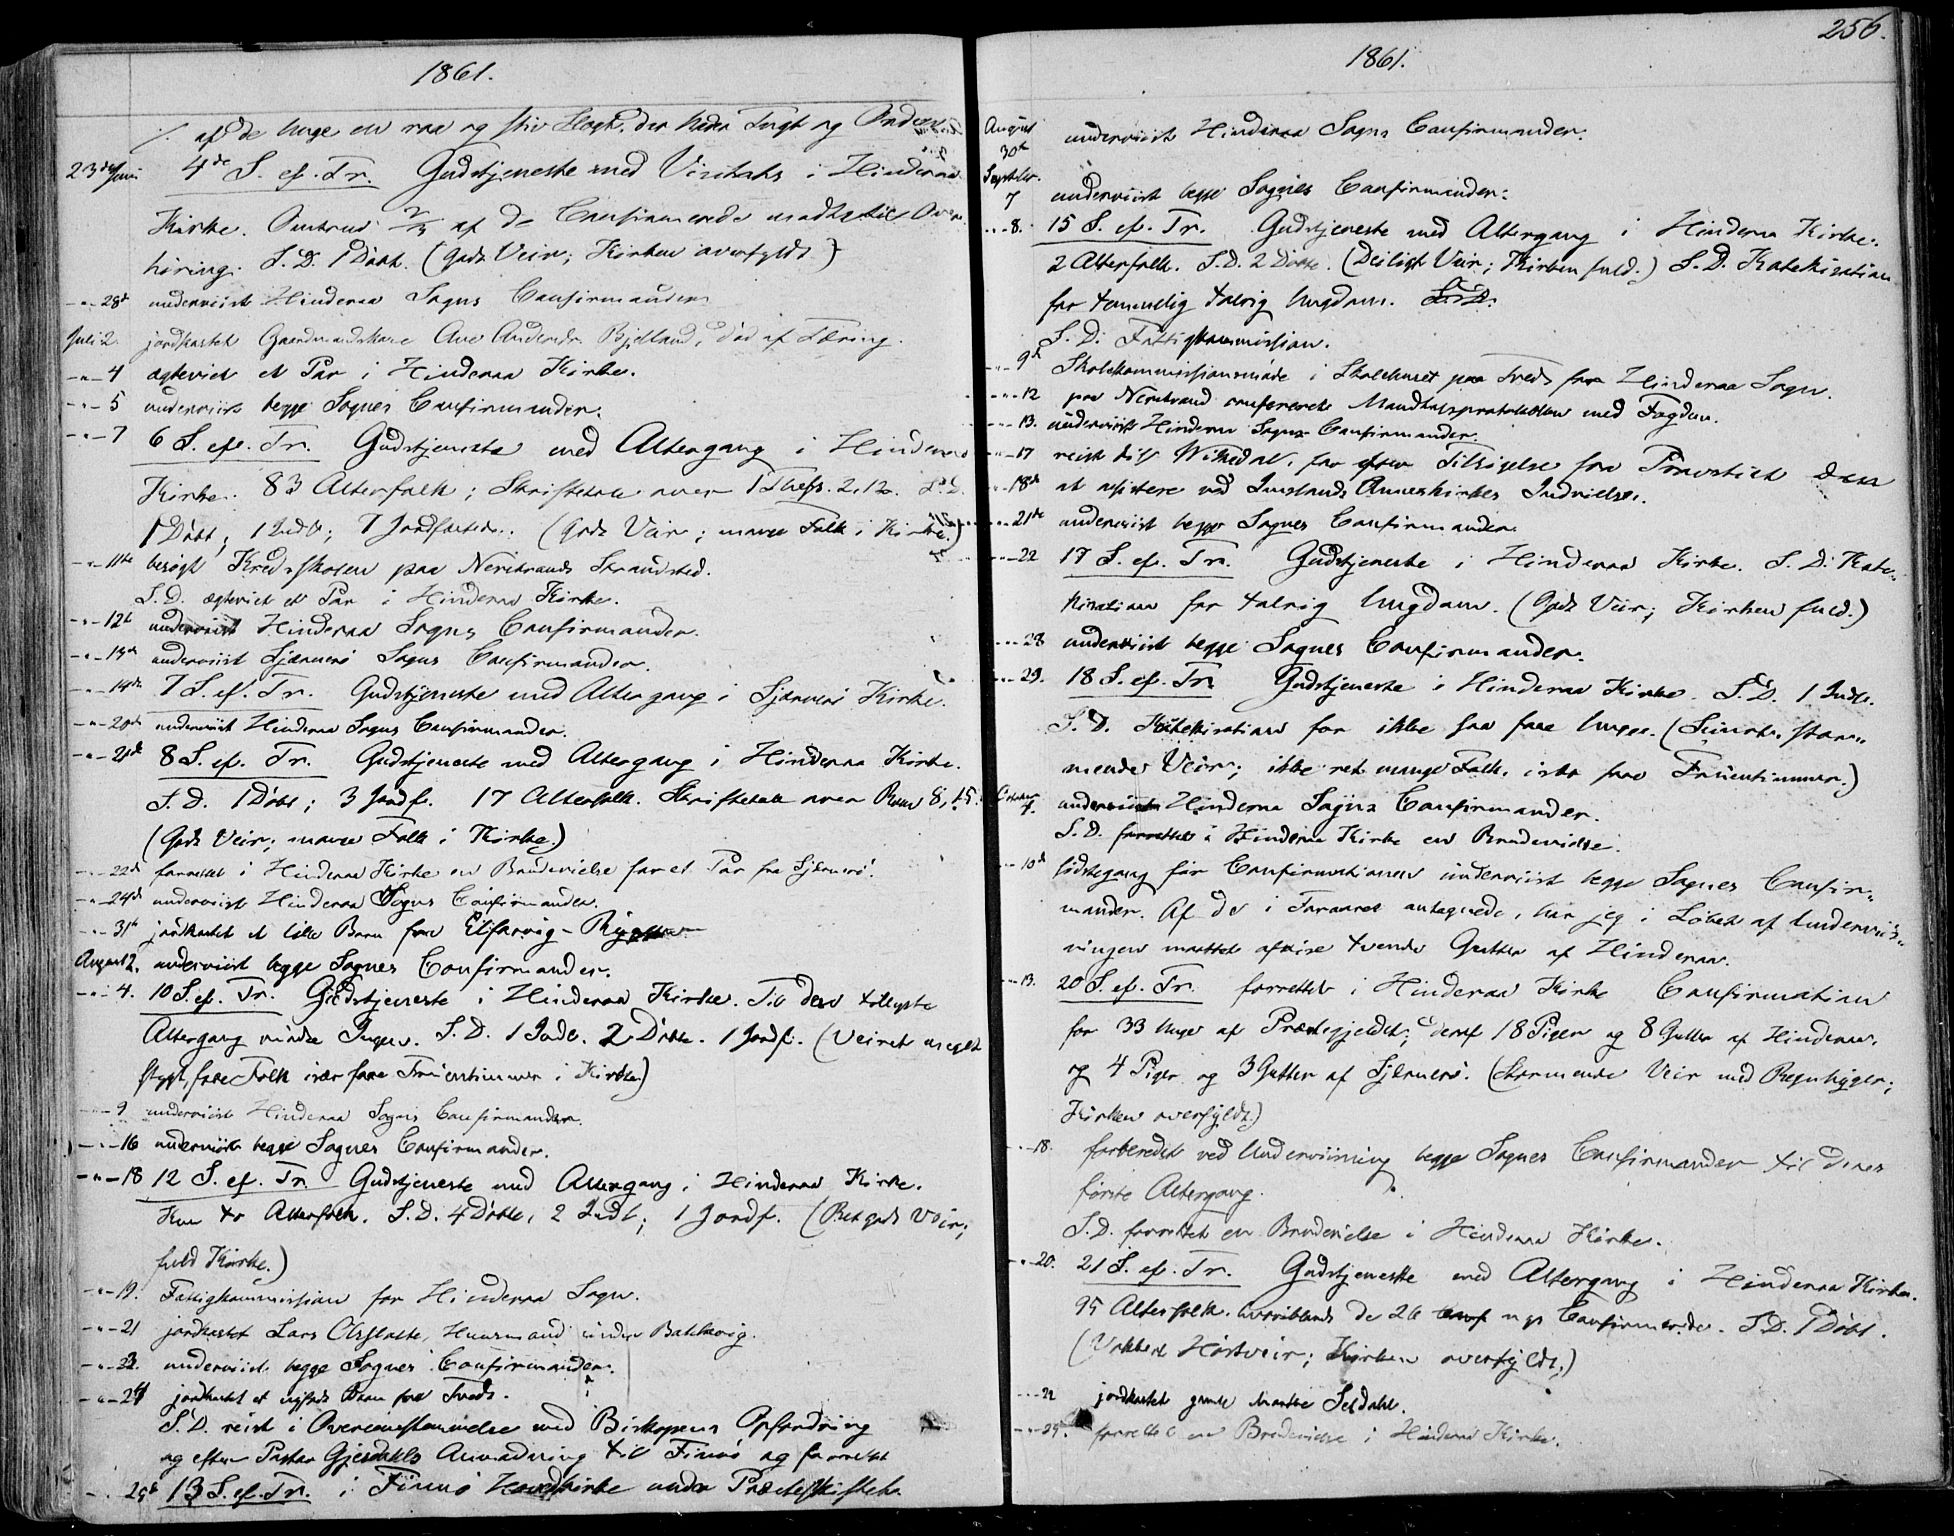 1861.
af de unge en raa og stiv Slægt, der hader Tugt og Orden.
23de Juni 4de S. ef. Tr. Gudstjeneste med Visitats i Hinderaa
Kirke. Omtrent 2/3 af de Confirmerede mødte til Over-
høring. S.D. 1 Døbt. (Godt Veir; Kirken overfyldt.)
-"- 28de underviist Hinderaa Sogns Confirmander.
Juli 2. jordkastet Gaardmandskone Ane Andersdr. Bjelland, død af Tæring.
-"- 4 ægteviet et Par i Hinderaa Kirke.
-"- 5 underviist begge Sognes Confirmander.
-"- 7 6 S. ef. Tr. Gudstjeneste med Altergang i Hinderaa
Kirke. 83 Alterfolk; Skriftetale over 1 Thess. 2,12. S.D.
1 Døbt; 1 Indl; 7 Jordfæstede. (Godt Veir; mange Folk i Kirke.)
-"- 11te besøgt Kredsskolen paa Nerstrands Strandsted.
S.D. ægteviet et Par i Hinderaa Kirke.
-"- 12te underviist Hinderaa Sogns Confirmander.
-"- 13de underviist Sjærnerø Sogns Confirmander.
-"- 14de 7 S. ef. Tr. Gudstjeneste med Altergang i Sjærnerø Kirke.
-"- 20de underviist Hinderaa Sogns Confirmander.
-"- 21de 8 S. ef. Tr. Gudstjeneste med Altergang i Hinderaa Kirke.
S.D. 1 Døbt; 3 Jordf. 17 Alterfolk. Skriftetale over Rom 8,15.
(Godt Veir; mange Folk i Kirke.)
-"- 22de forrettet i Hinderaa Kirke en Brudevielse for et Par fra Sjærnerø.
-"- 24de underviist Hinderaa Sogns Confirmander.
-"- 31te jordkastet et lille Barn fra Elfarvig-
August 2. underviist begge Sognes Confirmander.
-"- 4. 10 S. ef. Tr. Gudstjeneste i Hinderaa Kirke. Til den tillyste
Altergang mødte Ingen. S.D. 1 Indl. 2 Døbte. 1 Jordf. (Veiret meget
stygt, faae Folk især faae Fruentimmer i Kirke)
-"- 9 underviist Hinderaa Sogns Confirmander.
-"- 16 underviist begge Sognes Confirmander.
-"- 18 12 S. ef. Tr. Gudstjeneste med Altergang i Hinderaa Kirke.
Kun to Alterfolk. S.D. 4 Døbte, 2 Indl; 1 Jordf. (Ret godt Veir;
fuld Kirke.)
-"- 19. Fattigkommission for Hinderaa Sogn.
-"- 21 jordkastet Lars Huusmand under Bakkevig.
-"- 23. underviist begge Sognes Confirmander.
-"- 24 jordkastet et nyfødt Barn fra Tveds.
S.D. reist i Overeensstemmelse med Biskopens Opfordring
og efter Pastor Gjesdahls Anmodning til Finnø og forrettet
25de 13 S. ef. Tr. i Finnø Hovedkirke under Præsteskiftet.
256.
1861.
August 30te underviist Hinderaa Sogns Confirmander.
Septbr. 7 underviist begge Sognes Confirmander.
-"- 8. 15 S. ef. Tr. Gudstjeneste med Altergang i Hinderaa Kirke.
2 Alterfolk. S.D. 2 Døbte. (Deiligt Veir; Kirken fuld.) S.D. Katekisation
for temmelig talrig Ungdom. S.D.
S.D. Fattigkommission.
-"- 9de Skolekommissionsmøde i Skolehuset paa Tveds for Hinderaa Sogn.
-"- 12 paa Nerstrand confererede Mandtalsprotokollen med Fogden.
-"- 13. underviist Hinderaa Sogns Confirmander.
-"- 17 reist til Wikedal, for efter Tilsigelse fra Provstiet den
18de at assistere ved Imslands Annexkirkes Indvielse.
-"- 21de underviist begge Sognes Confirmander.
-"- 22 17 S. ef. Tr. Gudstjeneste i Hinderaa Kirke. S.D. Kate-
kisation for talrig Ungdom. (Godt Veir; Kirken fuld.)
-"- 28 underviist begge Sognes Confirmander.
-"- 29. 18 S. ef. Tr. Gudstjeneste i Hinderaa Kirke. S.D. 1 Indl.
S.D. Katekisation for ikke saa faae Unge. (Smukt, stor-
mende Veir; ikke ret mange Folk, især faae Fruentimmer.)
October 4. underviist Hinderaa Sogns Confirmander.
S.D. forrettet i Hinderaa Kirke en Brudevielse.
-"- 10de sidstegang før Confirmationen underviist begge Sognes Confir-
mander. Af de i Foraaret antegnede, har jeg i Løbet af Underviis-
ningen maattet afvise tvende Gutter af Hinderaa.
-"- 13. 20 S. ef. Tr. forrettet i Hinderaa Kirke Confirmation
for 33 Unge af Præstegjeldet; deraf 18 Piger og 8 Gutter af Hinderaa,
og 4 Piger og 3 Gutter af Sjernerø. (Stormende Veir med Regnbyger;
Kirken overfyldt.)
-"- 18. forberedt ved Underviisning begge Sognes Confirmander til deres
første Altergang.
S.D. forrettet en Brudevielse i Hinderaa Kirke.
-"- 20. 21 S. ef. Tr. Gudstjeneste med Altergang i Hinderaa Kirke.
95 Alterfolk, hvoriblandt de 26 nye Confirmerede. S.D. 1 Døbt.
(Vakkert Høstveir; Kirken overfyldt.)
-"- 22 jordkastet gamle Marthe Seldahl.
-"- 25. forrettet en Brudevielse i Hinderaa Kirke.